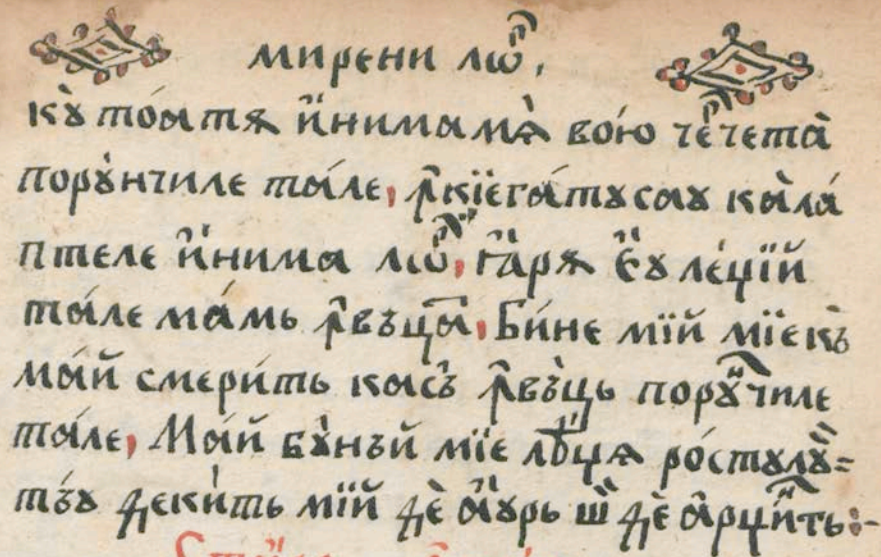 мирени лѡⷬ,
кꙋ тоатѧ и́нимамѧ̀ вою̀ че́чета̀
порꙋ́нчиле та́ле, ꙟ҆кїега́тусау ка̀ла́
птеле и́нима лѡⷬ, га̀рѧ є҆у ле́џїй
та́ле ма́мь ꙟ҆въца́т, Би́не мїй мїекъ
ма́й смери́ть касъ̀ ꙟ҆въ́ць порꙋ́нчиле
та́ле, Ма́й бꙋ́нъй мїе лѣ́џѧ ро́стꙋлꙋ́=
тъ́ꙋ декѝть мїй дѐ а҆́урь шѝ дѐ а҆рџи́нть:-